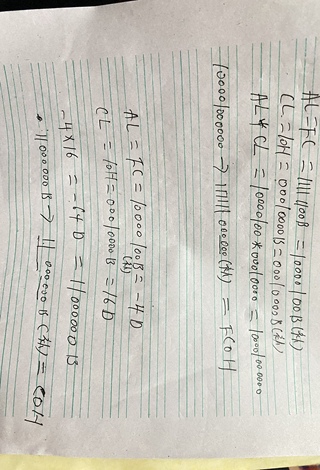 AL=FC=1111 1100B=10000100B(补)
CL=10H=00010000B=00010000B(补)
AL*CL=10000100*00010000=10001000000
10001000000→111111000000(补)=FC0H
AL=FC=10000100B=-4D
CL=10H=00010000B=16D
-4×16=-64D=11000000B
11000000B→11000000B(补)=C0H